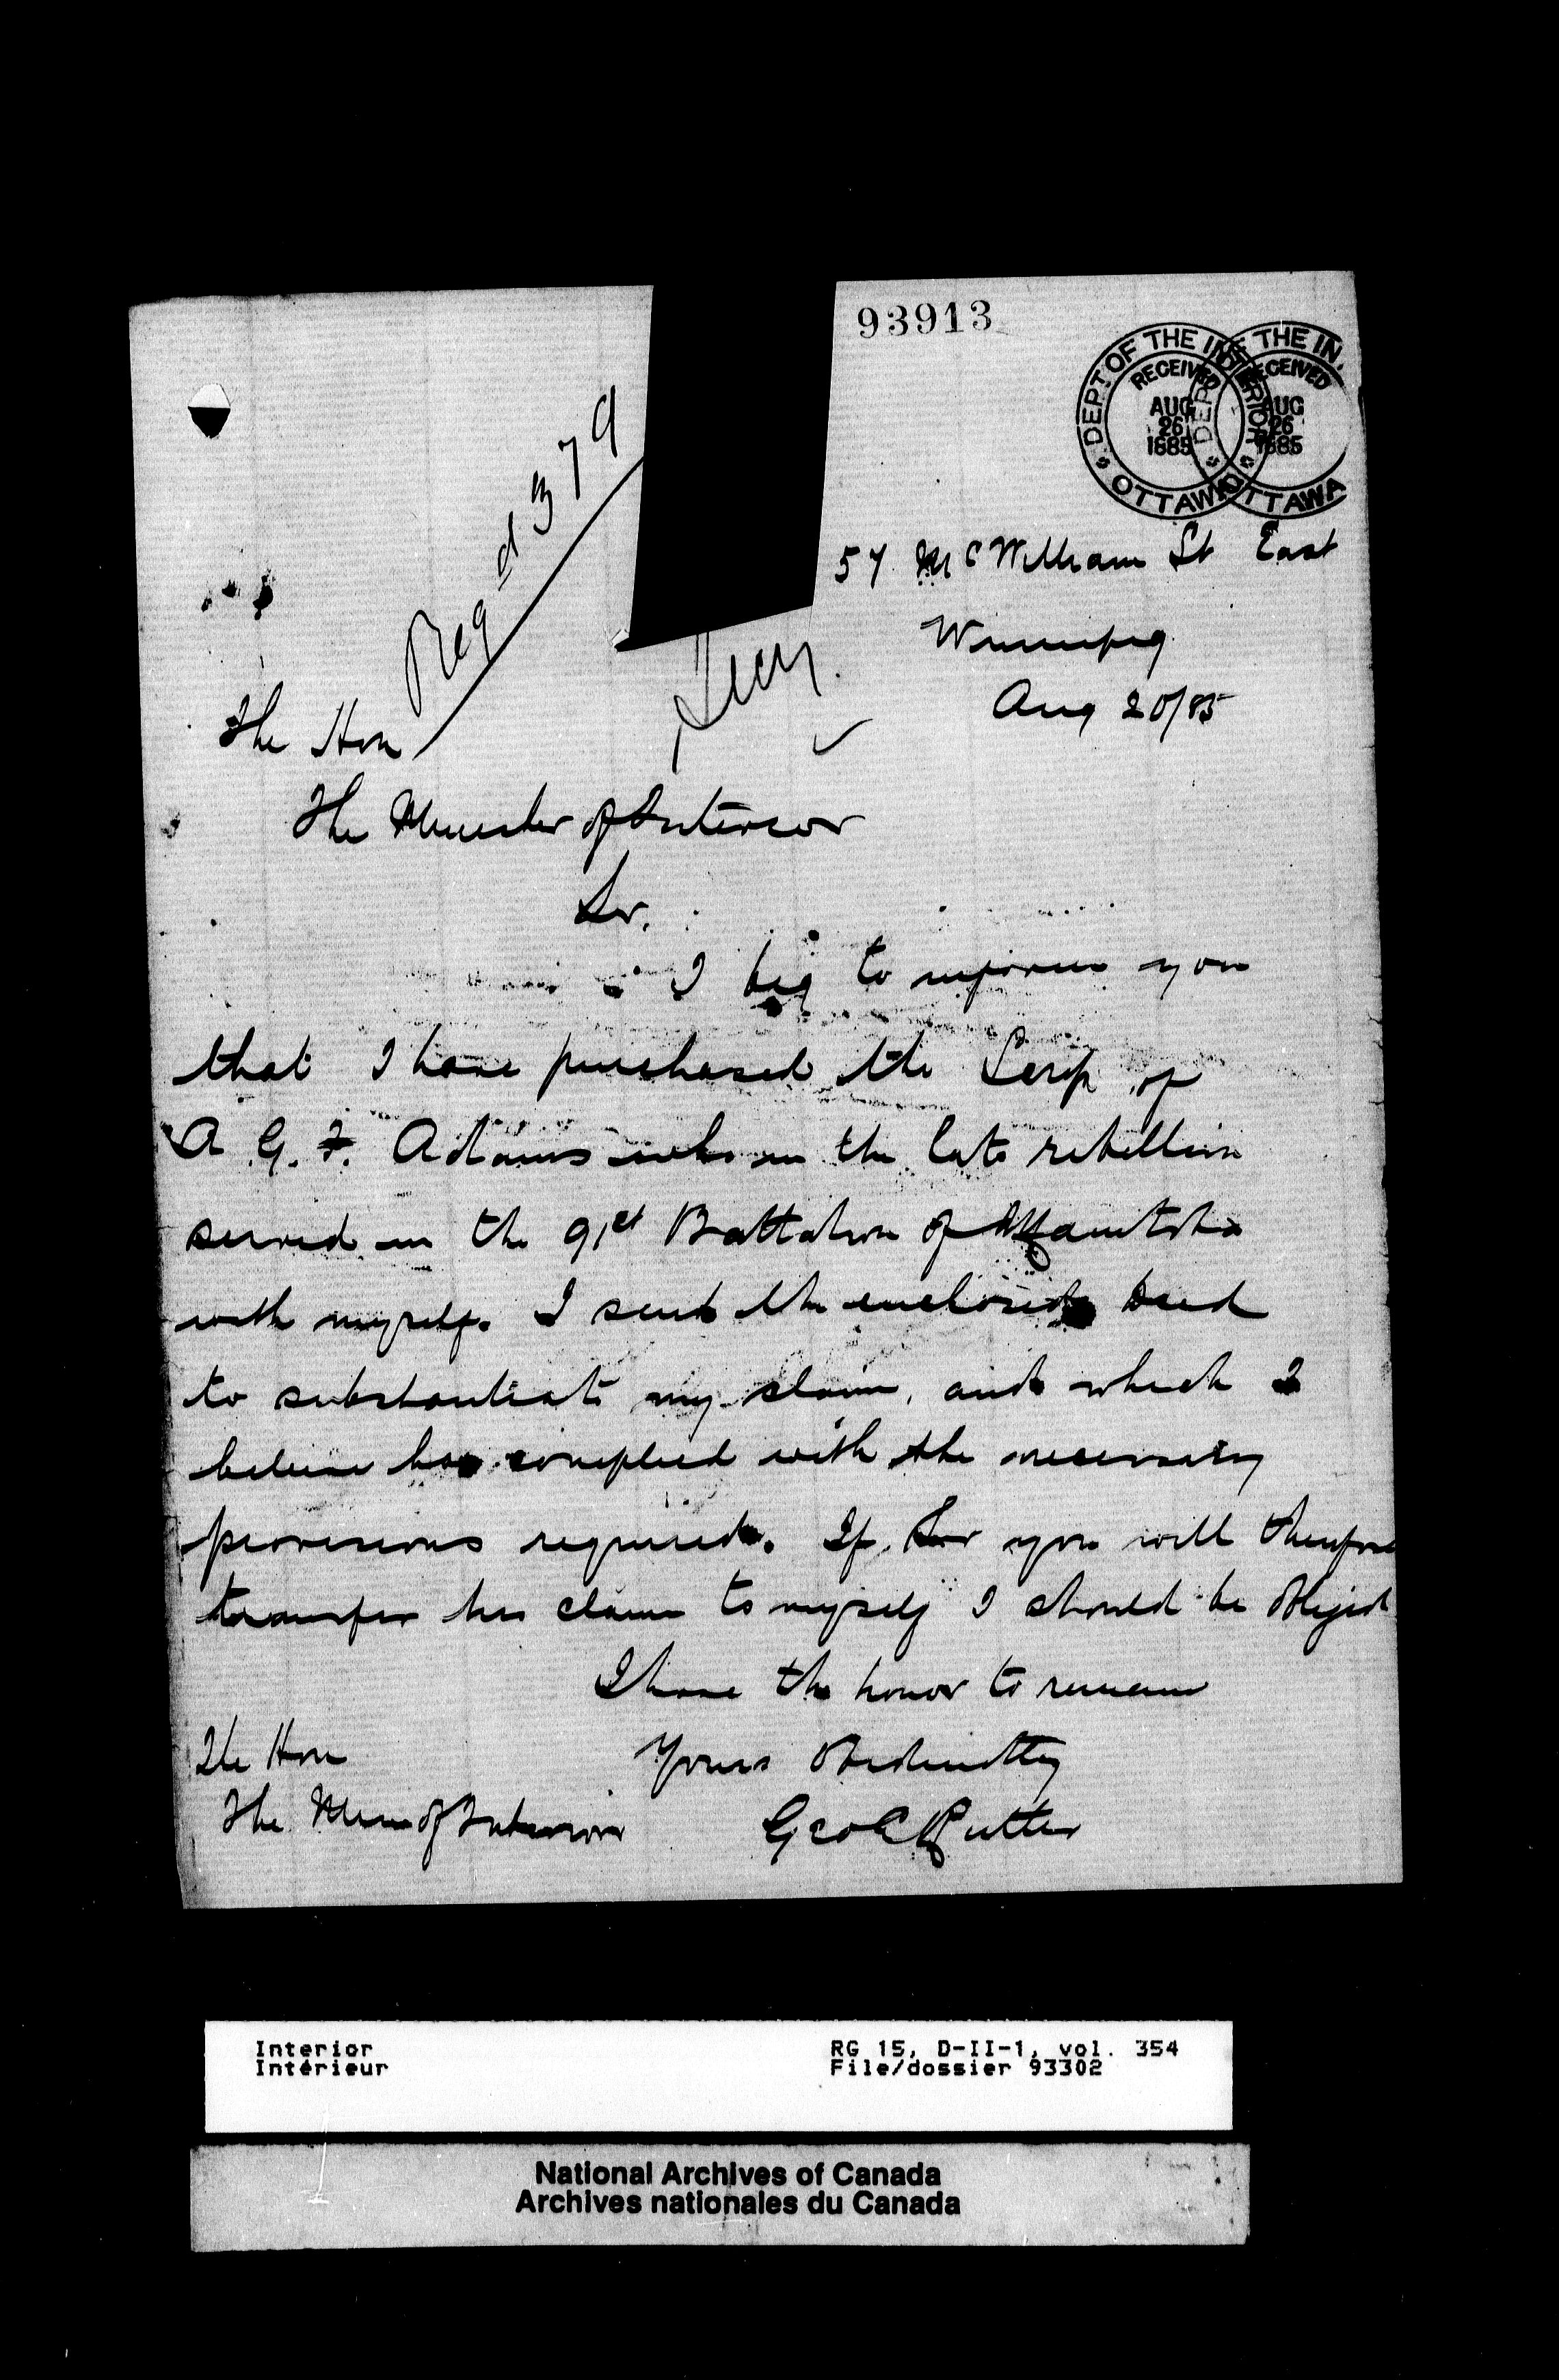 93913
DEPT. OF THE INTERIOR
RECEIVED
AUG
26
1885
OTTAWA
DEPT. OF THE IN
RECEIVED
AUG
26
1885
OTTAWA
Regd 379
57 McWilliam St East
Winnipeg
Aug 20/85
The Hon
The Minister of Interior
Sir,
I beg to inform you
that I have purchased the Scrip of
A. G. F. Adams who in the late rebellion
served in the 91st Battalion of Manitoba
with myself. I send the enclosed Deed
to substantiate my claim, and which I
believe has complied with the necessary
provisions required. If Sir you will therefore
transfer his claim to myself I should be obliged
I have the honor to remain
Yours Obediently
Geo C Rutter
The Hon
The Min of Interior
Interior RG 15, D-II-1, vol. 354
Intérieur File/dossier 93302
National Archives of Canada
Archives nationales du Canada